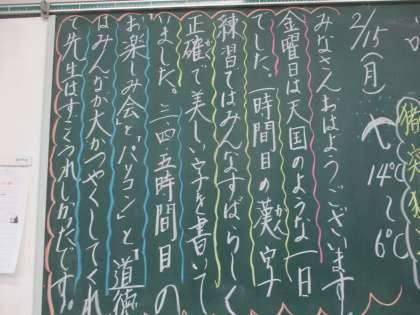 2/15(月)
14℃~6℃
みなさんおはようございます。
金曜日は天国のような一日
でした。一時間目の漢字
練習ではみんなすばらしく
正確で美しい字を書いて
いました。三・四・五時間目の
お楽しみ会と「パソコン」と「道徳
はみんなが大かつやくしてくれ
て先生はすごくうれしかたです。